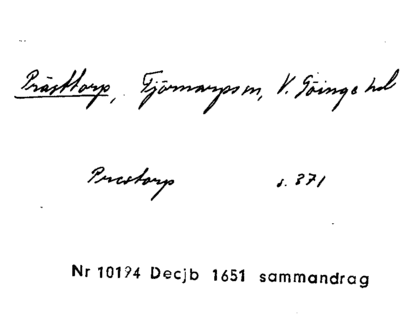 Prästtorp, Tjörnarps sn, V. Göinge hd
Prestorp s. 371
Nr 10194 Decjb 1651 sammandrag